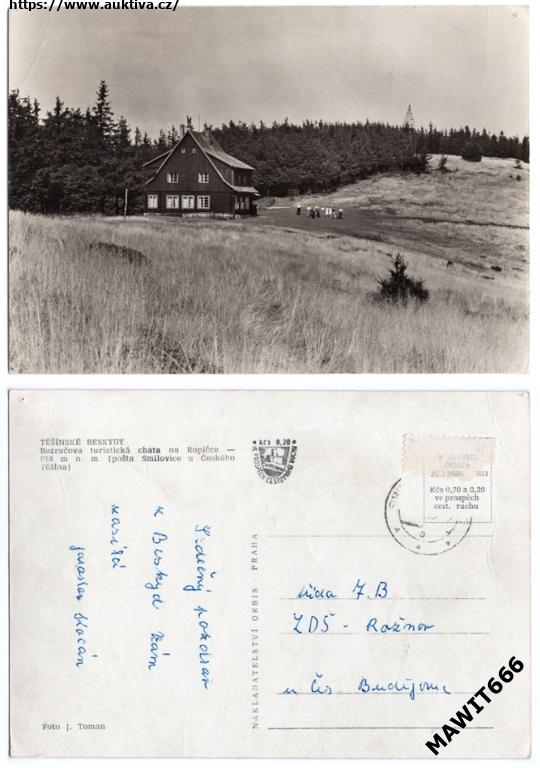 https://www.auktiva.cz/
TĚŠÍNSKÉ BESKYDY
Bezručova turistická chata na Ropičce —
918 m n. m. (pošta Smilovice u Českého
Těšína)
★ Kčs 0,20 ★
VE PROSPĚCH CESTOVNÍHO RUCHU
Kčs 0,70 a 0,20
ve prospěch
cest. ruchu
Srdečný pozdrav
z Beskyd Vám
zasílá
Jaroslav
NAKLADATELSTVÍ ORBIS PRAHA
třída 7.B
ZDŠ - Rožnov
u Čes Budějovic
Foto J. Toman
MAWIT666